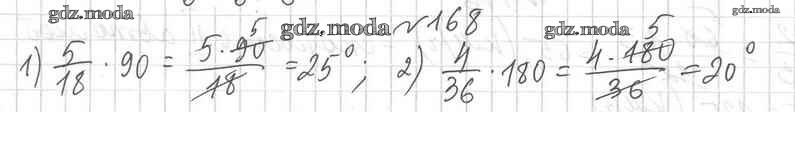 gdz.moda gdz.moda №168 gdz.moda gdz.moda
1) 5/18 · 90 = 5 · 90/18 = 25°; 2) 4/36 · 180 = 4 · 180/36 = 20°
5 5